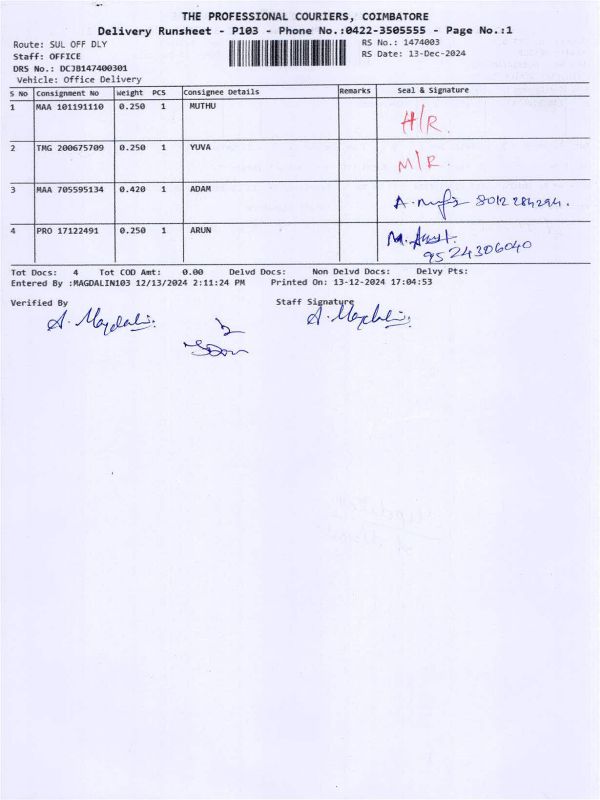 THE PROFESSIONAL COURIERS, COIMBATORE
Delivery Runsheet - P103 - Phone No.:0422-3505555 - Page No.:1
Route: SUL OFF DLY
RS No.: 1474003
Staff: OFFICE
RS Date: 13-Dec-2024
DRS No.: DCJB147400301
Vehicle: Office Delivery
S No Consignment No Weight PCS Consignee Details Remarks Seal & Signature
1 MAA 101191110 0.250 1 MUTHU
H/R.
2 TMG 200675709 0.250 1 YUVA
M/R.
3 MAA 705595134 0.420 1 ADAM
A. 8012 284294.
4 PRO 17122491 0.250 1 ARUN
M.
9524306040
Tot Docs: 4 Tot COD Amt: 0.00 Delvd Docs: Non Delvd Docs: Delvy Pts:
Entered By :MAGDALIN103 12/13/2024 2:11:24 PM Printed On: 13-12-2024 17:04:53
Verified By Staff Signature
A. Magdalin. A. Magdalin.